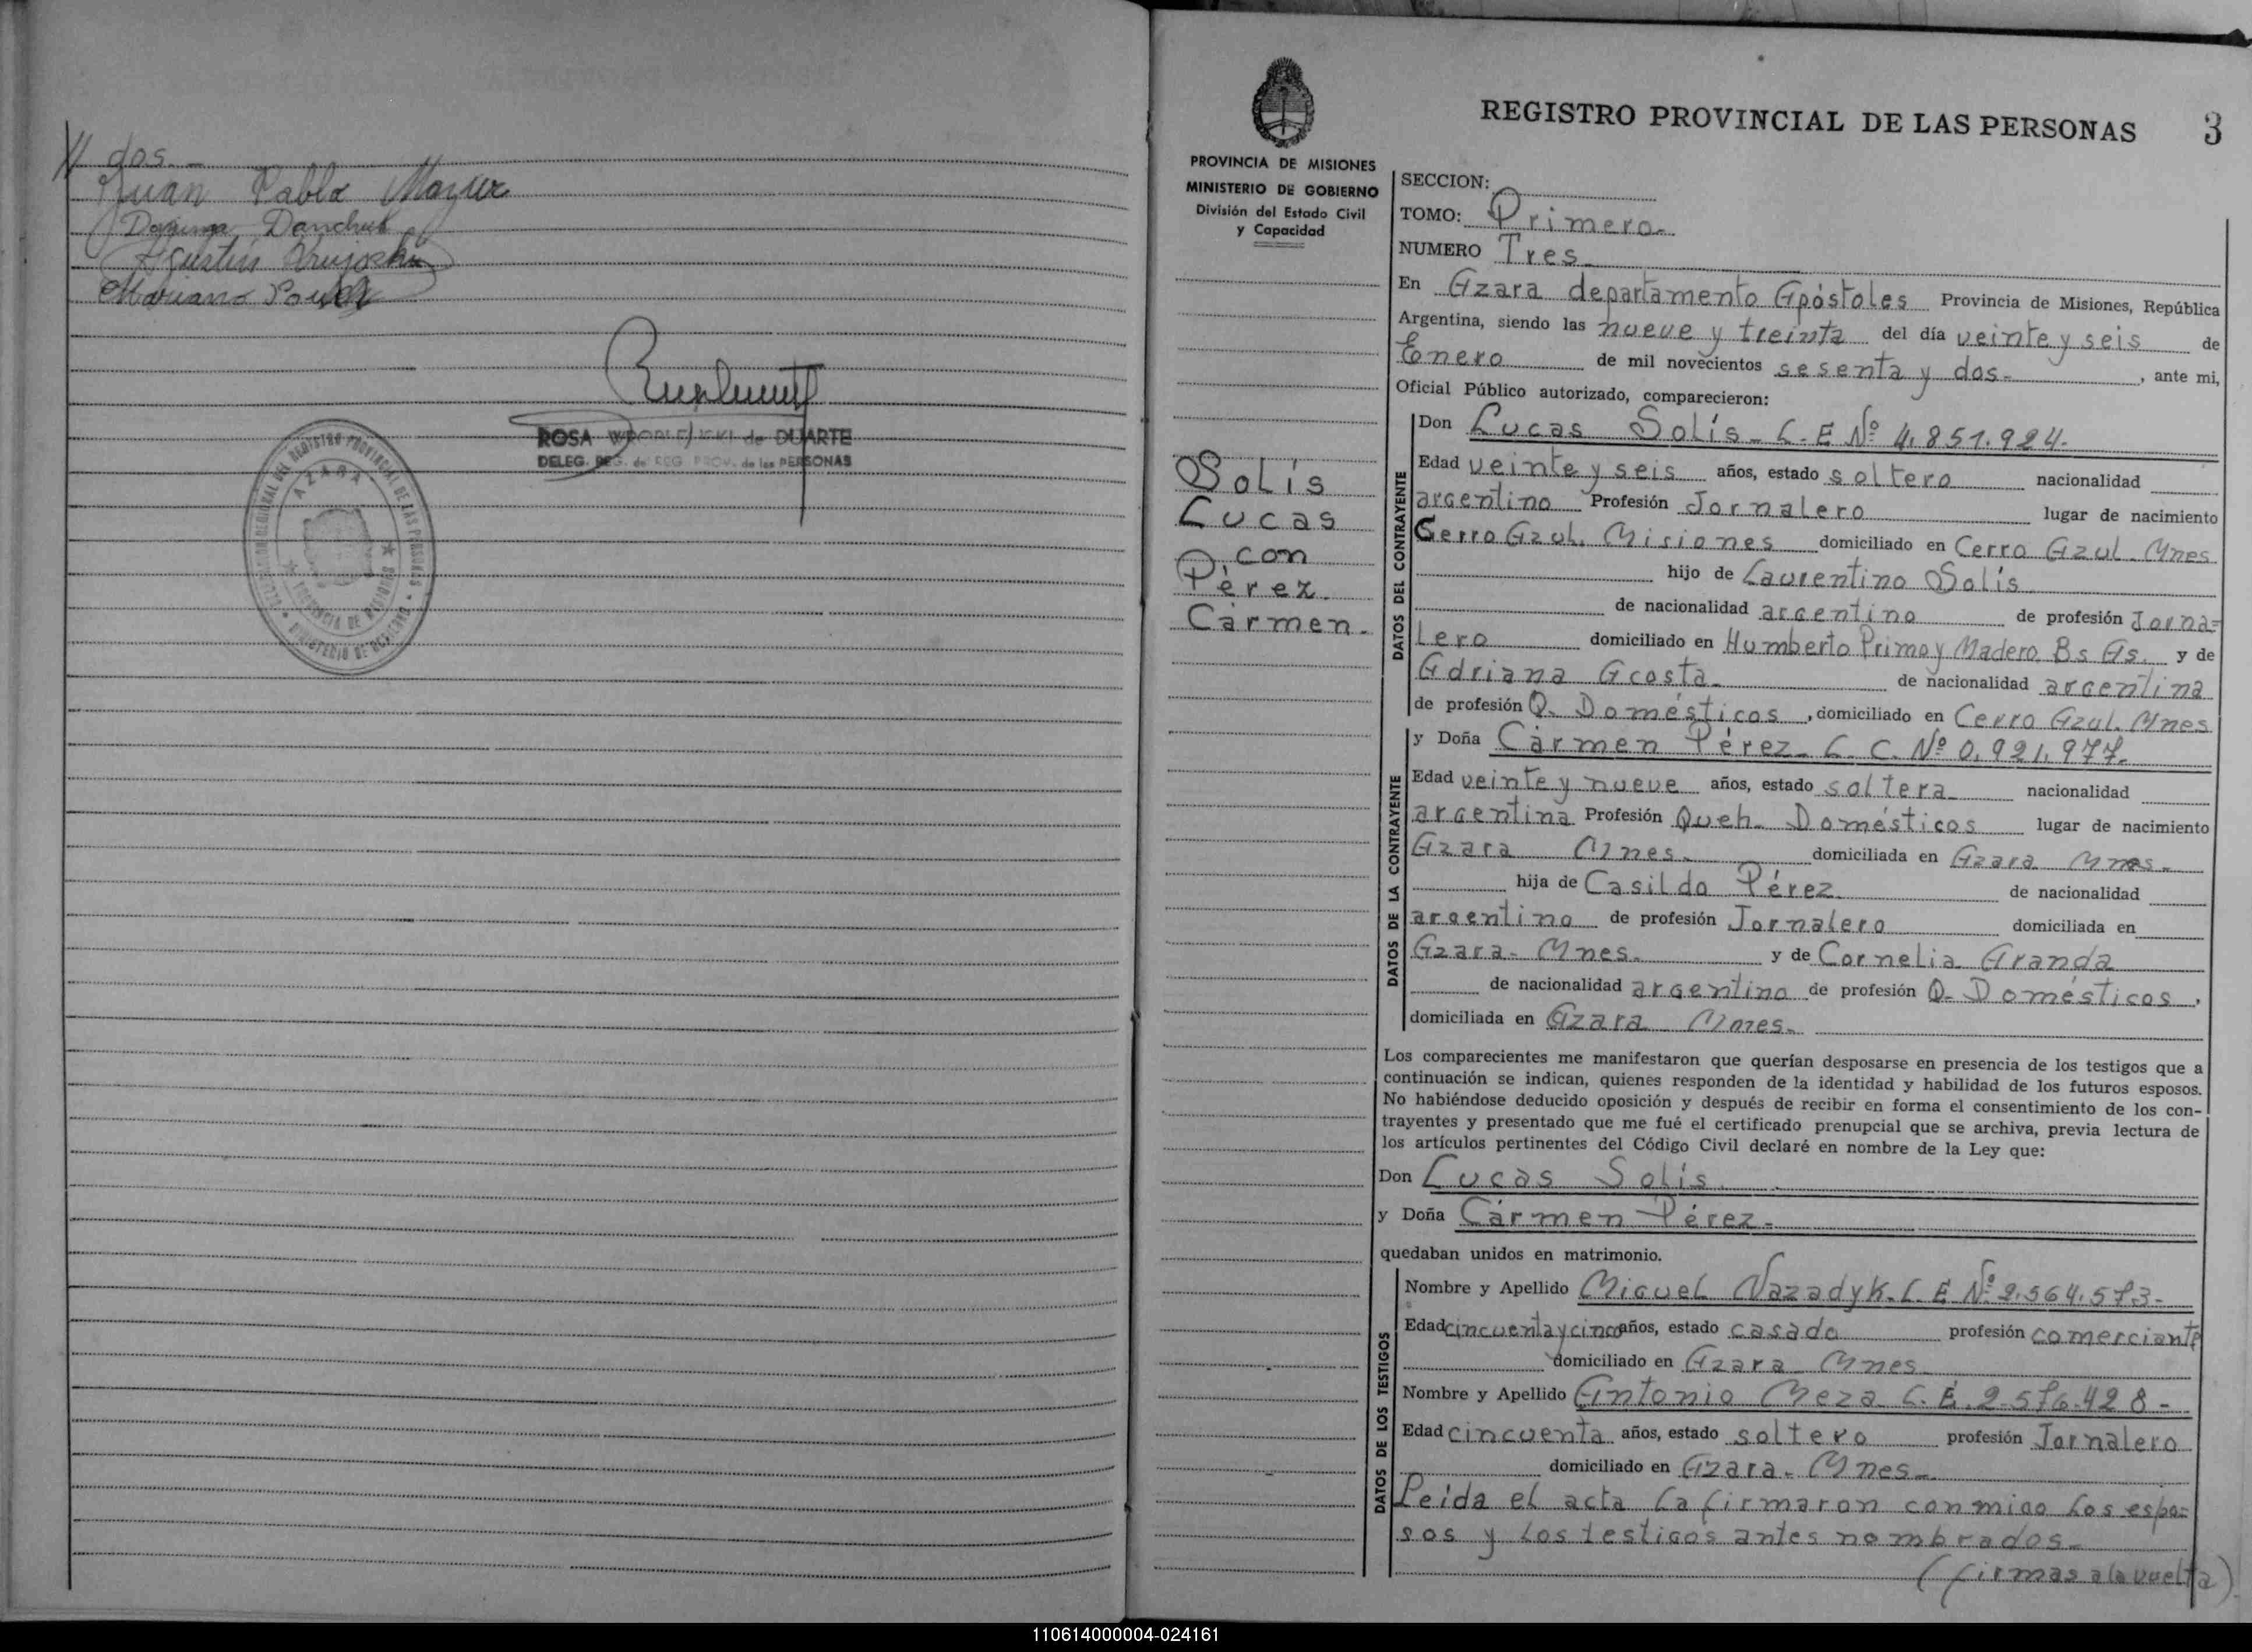 // dos.-
Juan Pablo Mazur
Agustín
Mariano
ROSA WROBLEWSKI de DUARTE
DELEG. REG. del REG. PROV. de las PERSONAS
AZARA
PROVINCIA DE MISIONES
MINISTERIO DE GOBIERNO
PROVINCIA DE MISIONES
MINISTERIO DE GOBIERNO
División del Estado Civil
y Capacidad
Solís
Lucas
con
Pérez
Cármen.-
REGISTRO PROVINCIAL DE LAS PERSONAS 3
SECCION:
TOMO: Primero.-
NUMERO Tres
En Azara departamento Apóstoles Provincia de Misiones, República
Argentina, siendo las nueve y treinta del día veinte y seis de
Enero de mil novecientos sesenta y dos.- , ante mi,
Oficial Público autorizado, comparecieron:
DATOS DEL CONTRAYENTE
Don Lucas Solís- L.E Nº 4.851.924.
Edad veinte y seis años, estado soltero nacionalidad
argentino Profesión Jornalero lugar de nacimiento
Cerro Azul. Misiones domiciliado en Cerro Azul. Mnes
hijo de Laurentino Solís
de nacionalidad argentino de profesión Jorna=
lero domiciliado en Humberto Primo y Madero Bs As. y de
Adriana Acosta de nacionalidad argentina
de profesión Q. Domésticos , domiciliado en Cerro Azul. Mnes
DATOS DE LA CONTRAYENTE
y Doña Cármen Pérez- L. C. Nº 0.921.977.
Edad veinte y nueve años, estado soltera nacionalidad
argentina Profesión Queh. Domésticos lugar de nacimiento
Azara Mnes. domiciliada en Azara Mnes.-
hija de Casildo Pérez de nacionalidad
argentino de profesión Jornalero domiciliada en
Azara- Mnes. y de Cornelia Aranda
de nacionalidad argentino de profesión Q. Domésticos ,
domiciliada en Azara Mnes.
Los comparecientes me manifestaron que querían desposarse en presencia de los testigos que a
continuación se indican, quienes responden de la identidad y habilidad de los futuros esposos.
No habiéndose deducido oposición y después de recibir en forma el consentimiento de los con-
trayentes y presentado que me fué el certificado prenupcial que se archiva, previa lectura de
los artículos pertinentes del Código Civil declaré en nombre de la Ley que:
Don Lucas Solís
y Doña Cármen Pérez.-
quedaban unidos en matrimonio.
DATOS DE LOS TESTIGOS
Nombre y Apellido Miguel Nazadyk. L. E Nº 2.564.573-
Edad cincuenta y cinco años, estado casado profesión comerciante
domiciliado en Azara Mnes
Nombre y Apellido Antonio Meza L. E. 2.576.428-
Edad cincuenta años, estado soltero profesión Jornalero
domiciliado en Azara. Mnes-
Leida el acta la firmaron conmigo los espo=
sos y los testigos antes nombrados-
(firmas a la vuelta)
110614000004-024161